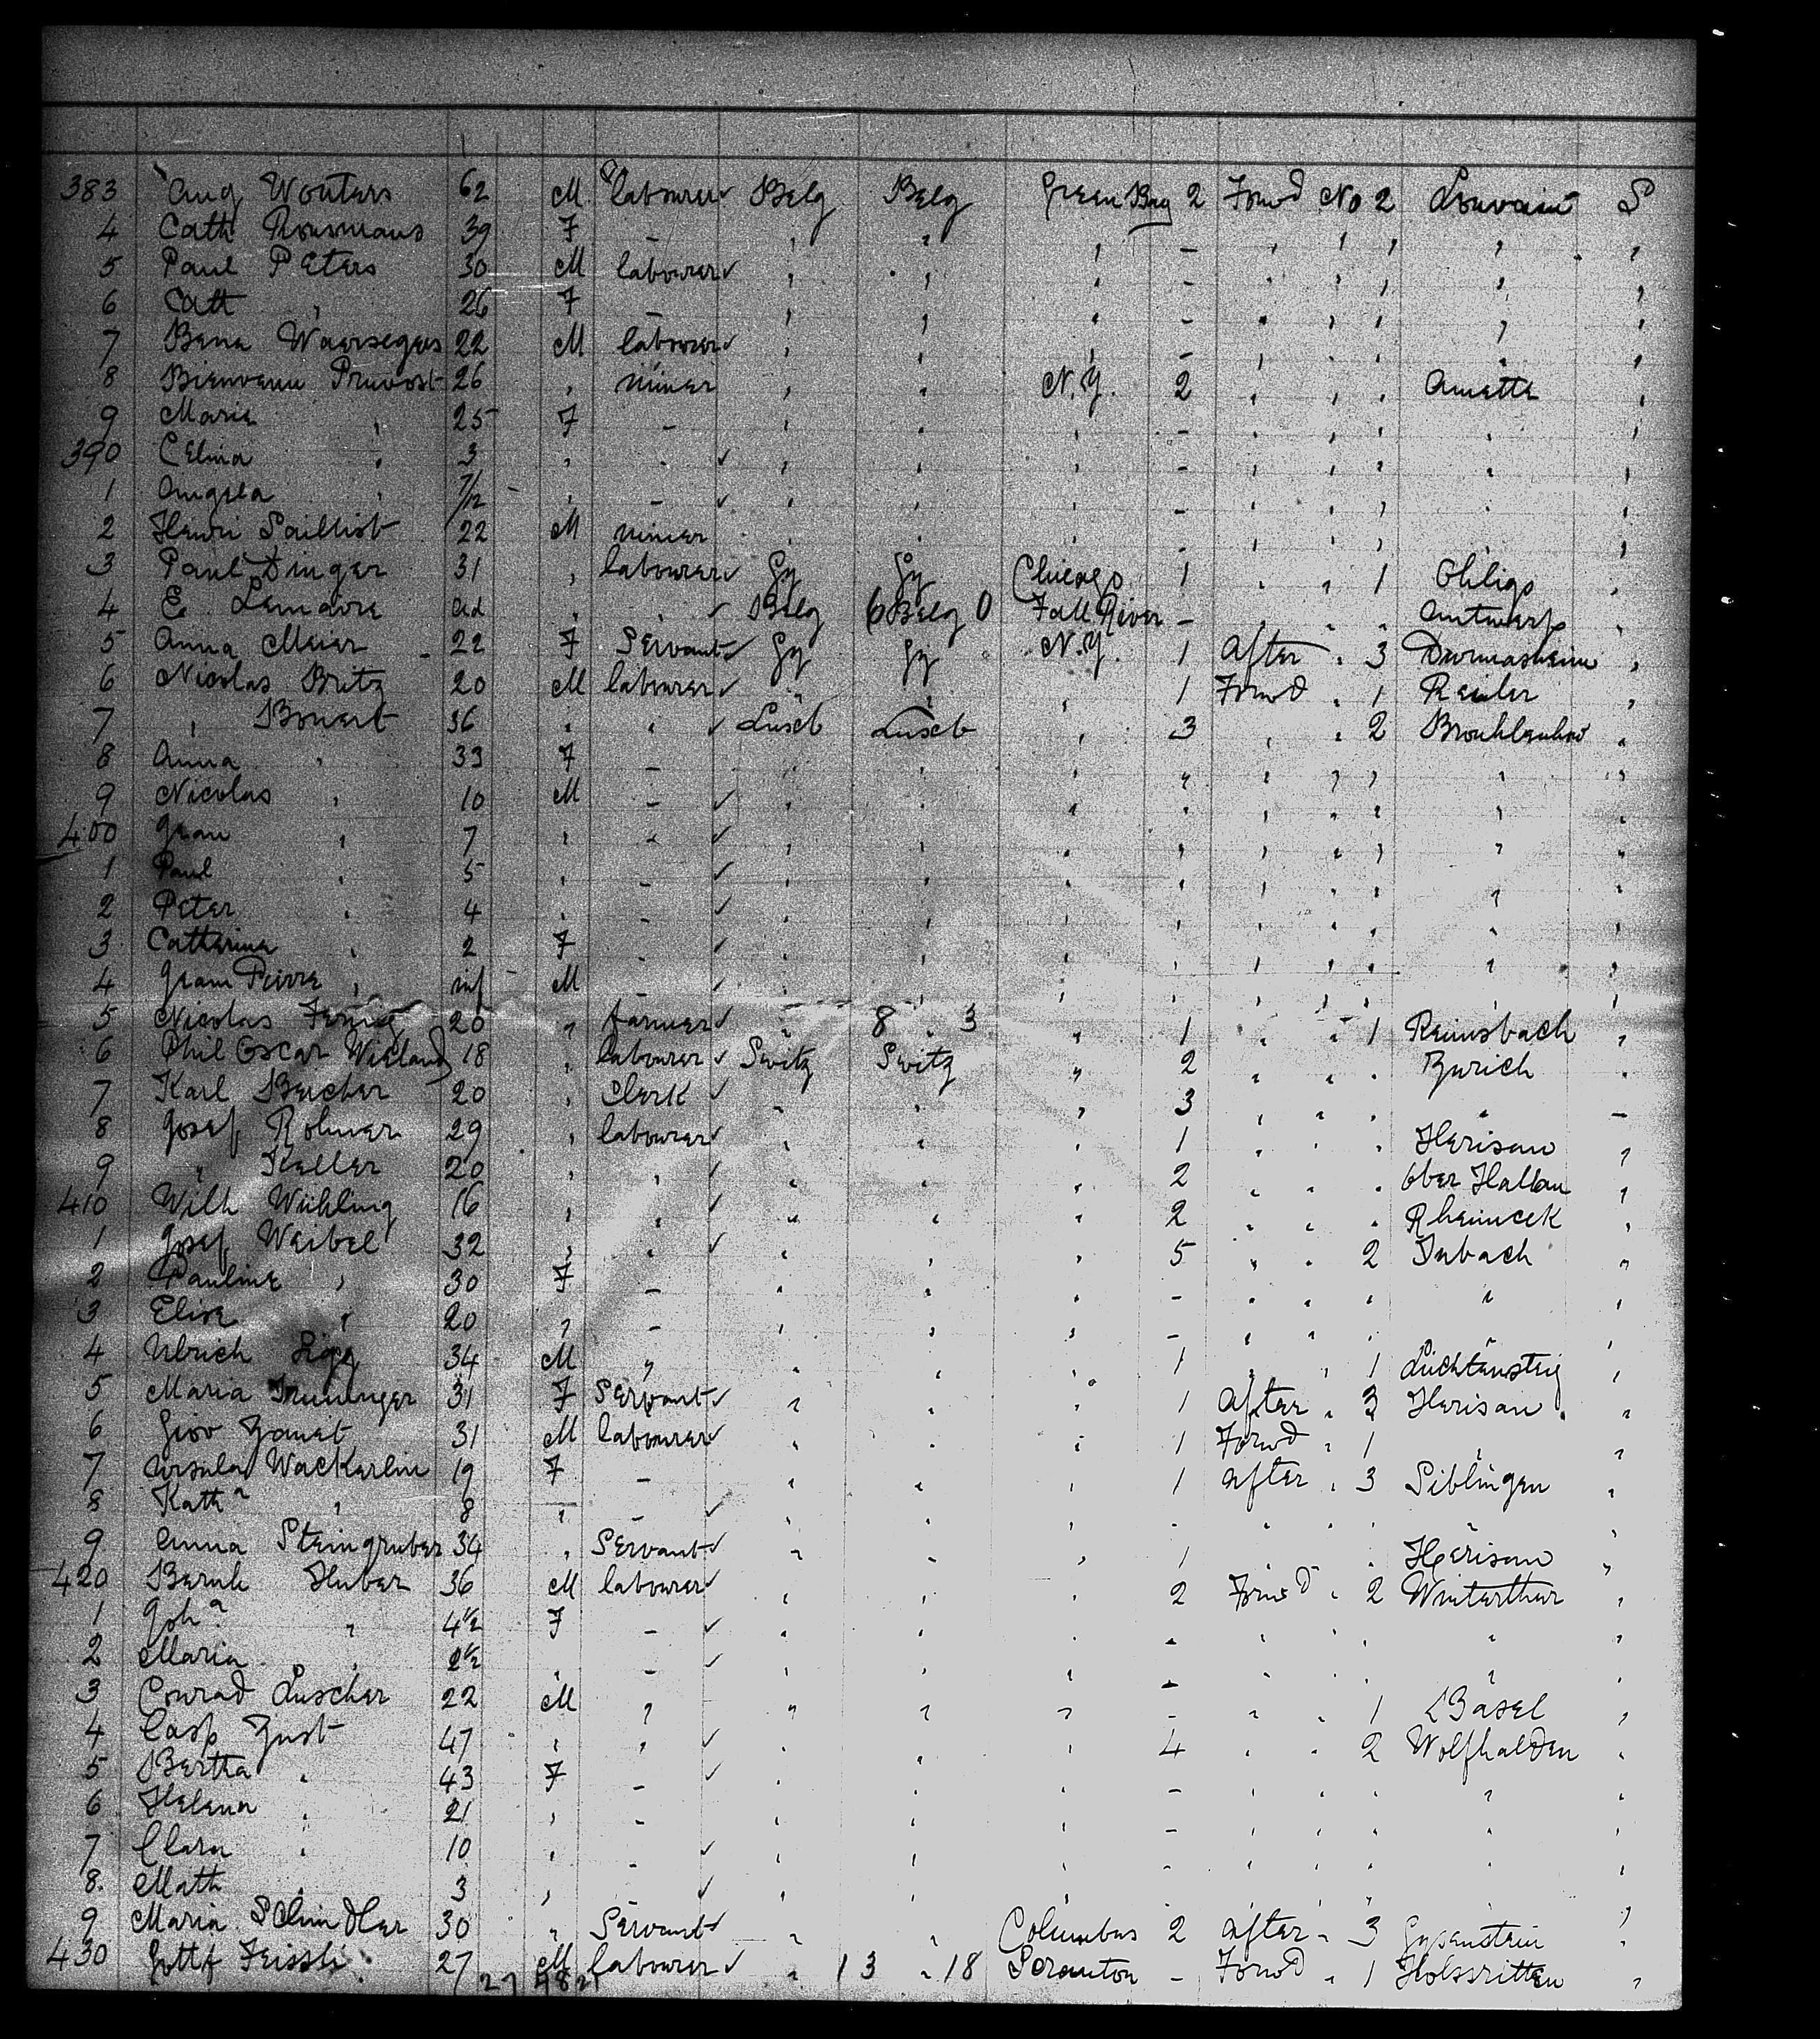 383 Aug Wouters 62 M labourer ✓ Belg Belg Green Bay 2 Forwd No 2 Louvain S
4 Cath 39 F - " " " - " " " " "
5 Paul Peters 30 M labourer ✓ " " " - " " " " "
6 Cath " 26 F - " " " - " " " " "
7 Bena Waersegers 22 M labourer ✓ " " " - " " " " "
8 Bienvenu Pruvost 26 " miner " " N.Y. 2 " " " Amette "
9 Marie " 25 F - " " " - " " " " "
390 Celina " 3 " - ✓ " " " - " " " " "
1 " 7/12 - " - ✓ " " " - " " " " "
2 Henri 22 M miner " " " - " " " " "
3 Paul Dinger 31 " labourer ✓ Gy Gy Chicago 1 " " 1 Ohligs "
4 E. Lemaire ad " " ✓ Belg 6 Belg 0 Fall River - " " " Antwerp "
5 Anna Meier - 22 F Servant ✓ Gy Gy N.Y. 1 After " 3 "
6 Nicolas Britz 20 M labourer ✓ " " " 1 Forwd " 1 Reiler "
7 " Bonert 36 " " ✓ Luxb Luxb " 3 " " 2 "
8 Anna " 33 F - " " " " " " " " "
9 Nicolas " 10 M - ✓ " " " " " " " " "
400 Jean " 7 " " ✓ " " " " " " " " "
1 Paul " 5 " - ✓ " " " " " " " " "
2 Peter " 4 " - ✓ " " " " " " " " "
3 Catharina " 2 F - ✓ " " " " " " " " "
4 Jean Pierre " inf - M - ✓ " " " " " " " " "
5 Nicolas 20 " farmer ✓ " 8 " 3 " 1 " " 1 Reimsbach "
6 Phil Oscar Wieland 18 " labourer ✓ Switz Switz " 2 " " " Zurich "
7 Karl Beicher 20 " Clerk ✓ " " " 3 " " " " -
8 Josef Rohner 29 " labourer ✓ " " " 1 " " " Herisau "
9 " Keller 20 " " ✓ " " " 2 " " " Ober Hallau "
410 Wilh Wühling 16 " " ✓ " " " 2 " " " Rheineck "
1 Josef Weibel 32 " " ✓ " " " 5 " " 2 Inbach "
2 Pauline " 30 F - " " " - " " " " "
3 Elise " 20 " - " " " - " " "
4 Ulrich Sigg 34 M " " " " 1 " " 1 Lichtensteig "
5 Maria 31 F Servant ✓ " " " 1 After " 3 Herisau "
6 Giov Zanet 31 M labourer ✓ " " " 1 Forwd " 1 " "
7 Ursula Wackerlin 19 F - " " " 1 After " 3 Siblingen "
8 Katha " 8 " - ✓ " " " - " " " " "
9 Anna Steingruber 34 " Servant ✓ " " " 1 " Herisau "
420 Bernh Huber 36 M labourer ✓ " " " 2 Forwd " 2 Winterthur "
1 Joha " 4½ F - ✓ " " " - " " " " "
2 Maria " 2½ " - ✓ " " " - " " " " "
3 Conrad Luscher 22 M " " " " - " " 1 Basel "
4 Casp Zust 47 " " ✓ " " " 4 " " 2 Wolfhalden "
5 Bertha " 43 F - ✓ " " " - " " " " "
6 Helena " 21 " - " " " - " " " " "
7 Clara " 10 " - ✓ " " " - " " " " "
8 Math " 3 " - ✓ " " " - " " " " "
9 Maria Schindler 30 " Servant ✓ " " Columbus 2 After " 3 "
430 Gottf Feissli 27 M labourer ✓ " 13 " 18 Scranton - Forwd " 1 "